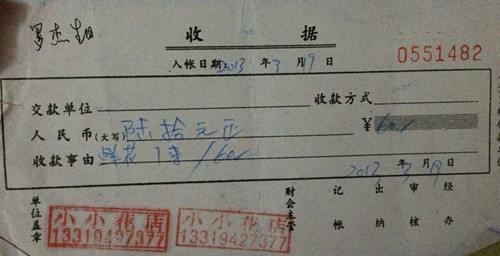 罗杰生日
收 据
入帐日期 2013 年 3 月 19 日
0551482
交款单位 收款方式
人民币(大写) 陆拾元正 ¥ 60/
收款事由 鲜花1束 /60/
2013 年 3 月 19 日
单位盖章
小小花店
13319427377
小小花店
13319427377
财会主管 记帐 出纳 审核 经办